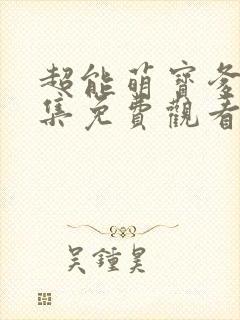 超能萌寶爹
集免費觀看
吴鍾昊